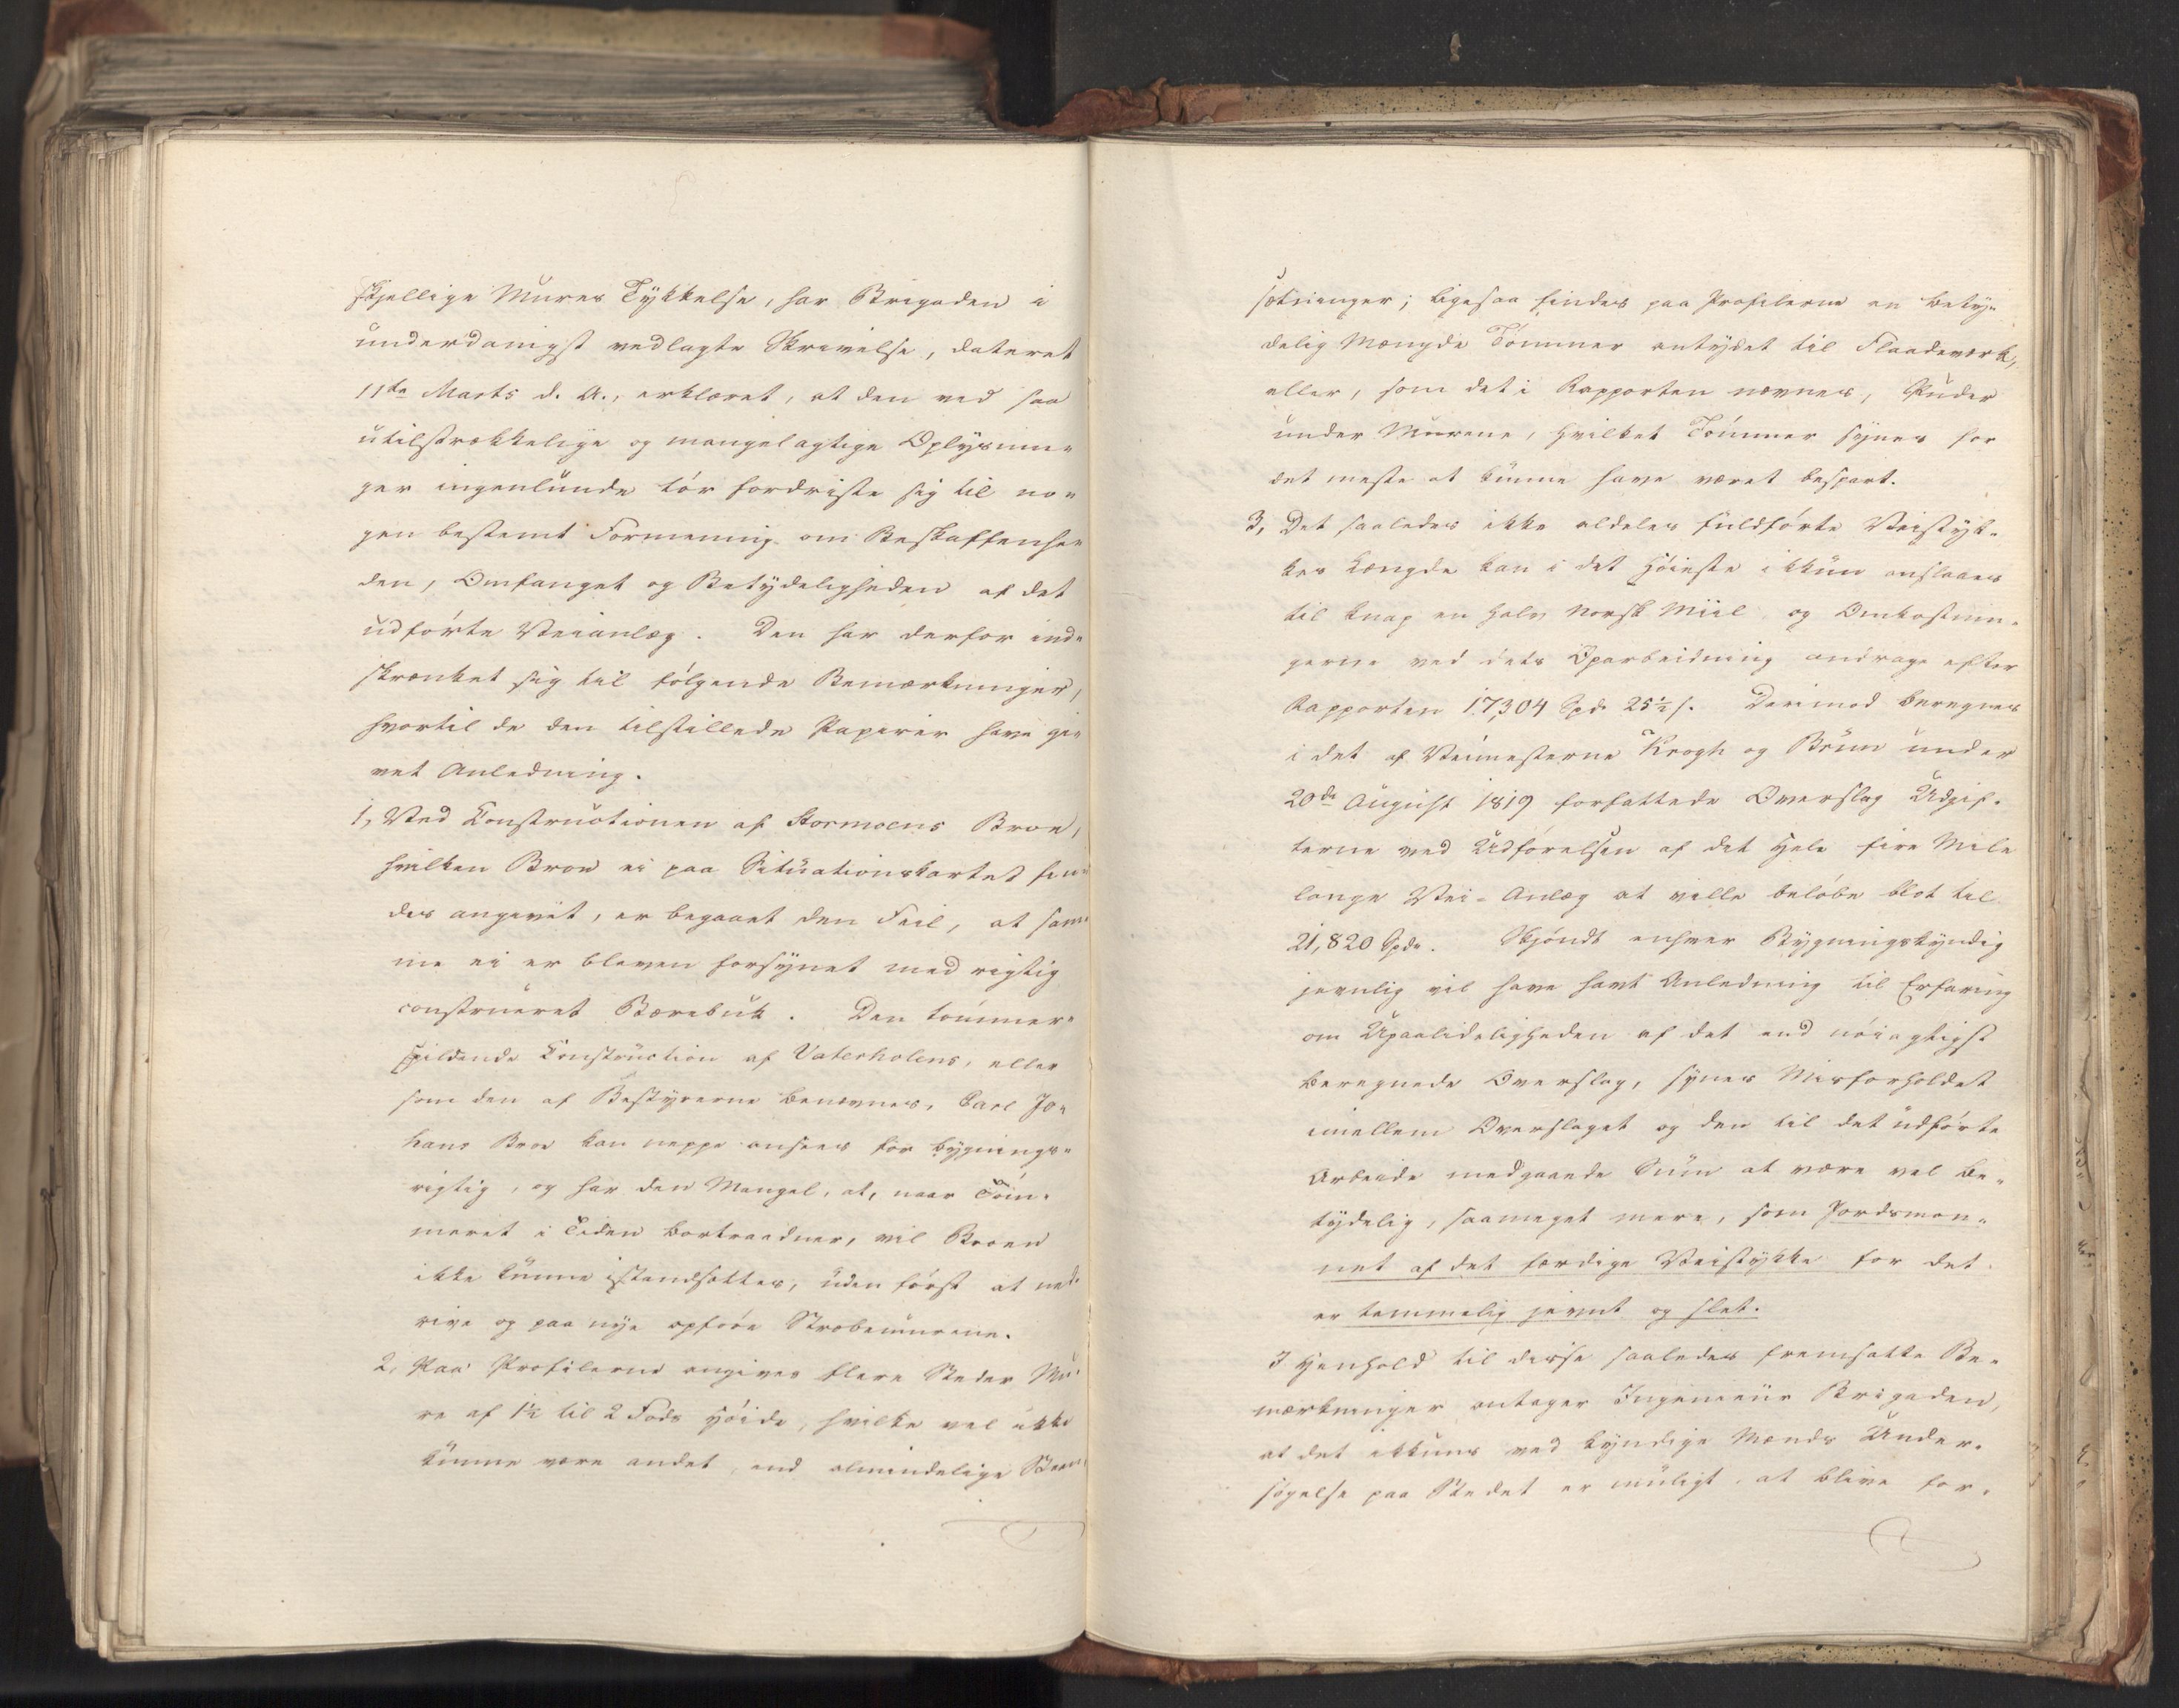 skjellige Mures Tykkelse, har Brigaden i
underdanigst vedlagte Skrivelse, dateret
11te Marts d. A., erklæret, at den ved saa
utilstrækkelige og mangelagtige Oplysnin-
ger ingenlunde tør fordriste sig til no-
gen bestemt Formening om Beskaffenhe-
den, Omfanget og Betydeligheden af det
udførte Veianlæg. Den har derfor ind-
skrænket sig til følgende Bemærkninger,
hvortil de den tilstillede Papirer have gi-
vet Anledning.
1, Ved Constructionen af Stormoens Broe,
hvilken Broe ei paa Situationskartet fin-
des angivet, er begaaet den Feil, at sam-
me ei er bleven forsynet med rigtig
construeret Bærebuk. Den tømmer-
spildende Construction af Vaterholens, eller
som den af Bestyrerne benævnes, Carl Jo-
hans Broe kan neppe ansees for bygnings-
rigtig, og har den Mangel, at, naar Tøm-
meret i Tiden bortraadner, vil Broen
ikke kunne istandsættes, uden først at ned-
rive og paa nye opføre Stræbemurene.
2, Paa Profilerne angives flere Steder Mu-
re af 1½ til 2 Fods Høide, hvilke vel ikke
kunne være andet, end almindelige Steen-
sætninger; ligesaa findes paa Profilerne en betyd-
delig Mængde Tømmer antydet til Flaadeværk,
eller, som det i Rapporten nævnes, Puder
under Murene, hvilket Tømmer synes for
det meste at kunne have været bespart.
3, Det saaledes ikke aldeles fuldførte Veistyk-
kes Længde kan i det Høieste ikkun anslaaes
til knap en halv norsk Miil og Omkostnin-
gerne ved dets Oparbeidning andrage efter
Rapporten 17,304 Spd. 25½ s. Derimod beregnes
i det af Veimesterne Krogh og Brun under
20de August 1819 forfattede Overslag Udgif-
terne ved Udførelsen af det hele fire Mile
lange Vei-Anlæg at ville beløbe blot til
21,820 Spd. Skjøndt enhver Bygningskyndig
jevnlig vil have havt Anledning til Erfaring
om Upaalideligheden af det end nøiagtigst
beregnede Overslag, synes Misforholdet
imellem Overslaget og den til det udførte
Arbeide medgaaende Sum at være vel be-
tydelig, saameget mere, som Jordsmon-
net af det færdige Veistykke for det
er temmelig jevnt og slet.
I Henhold til disse saaledes fremsatte Be-
mærkninger antager Ingenieur Brigaden,
at det ikkuns ved kyndige Mænds Under-
søgelse paa Stedet er muligt at blive for-